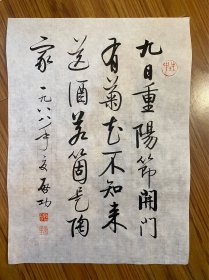 九日重陽節開門
有菊花不知来
送酒若箇是陶
家
一九八八年夏启功